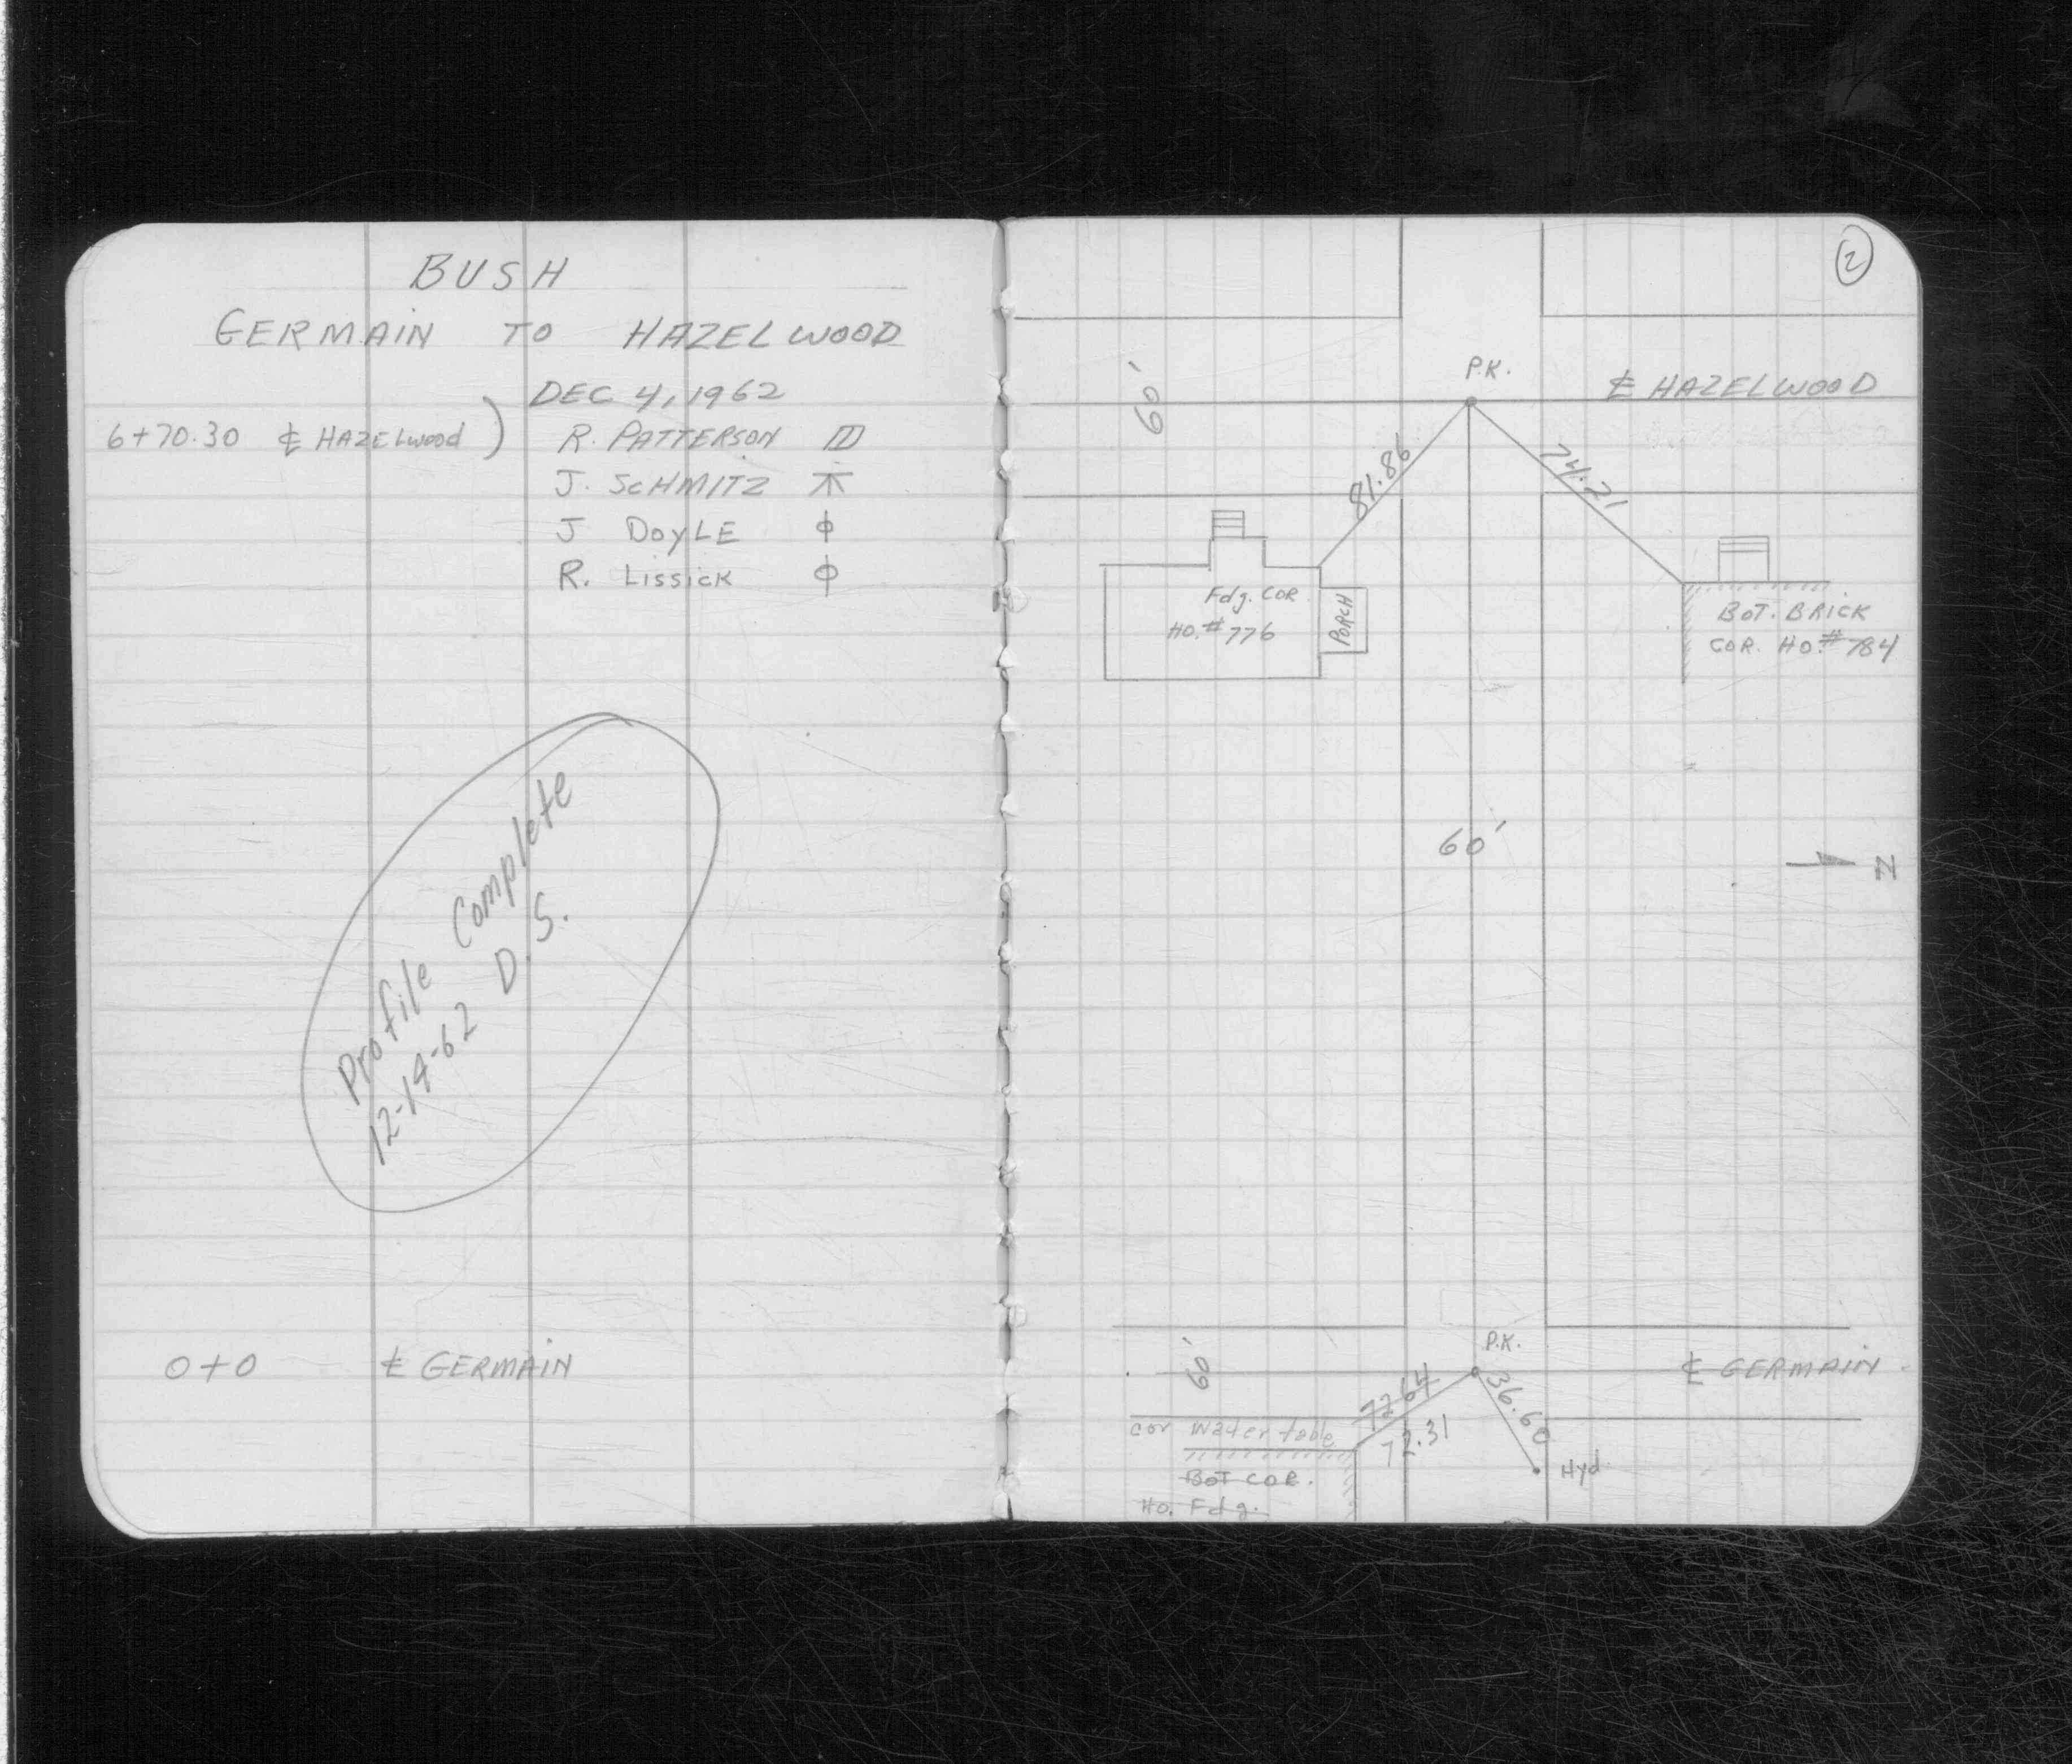 BUSH
GERMAIN TO HAZELWOOD
DEC 4, 1962
6+70.30 ℄ HAZELwood )
R. PATTERSON
J. SCHMITZ
J DOYLE ϕ
R. LISSICK ϕ
Profile Complete
12-14-62 D.S.
0+0 ℄ GERMAIN
2
P.K.
60'
℄ HAZELWOOD
81.86
74.21
Fdg. COR.
HO. #776
PORCH
BOT. BRICK
COR. HO. #784
60'
N
P.K.
60'
℄ GERMAIN
72.64
36.60
72.31
cor water table
BOT COR.
HO. Fdg.
Hyd.